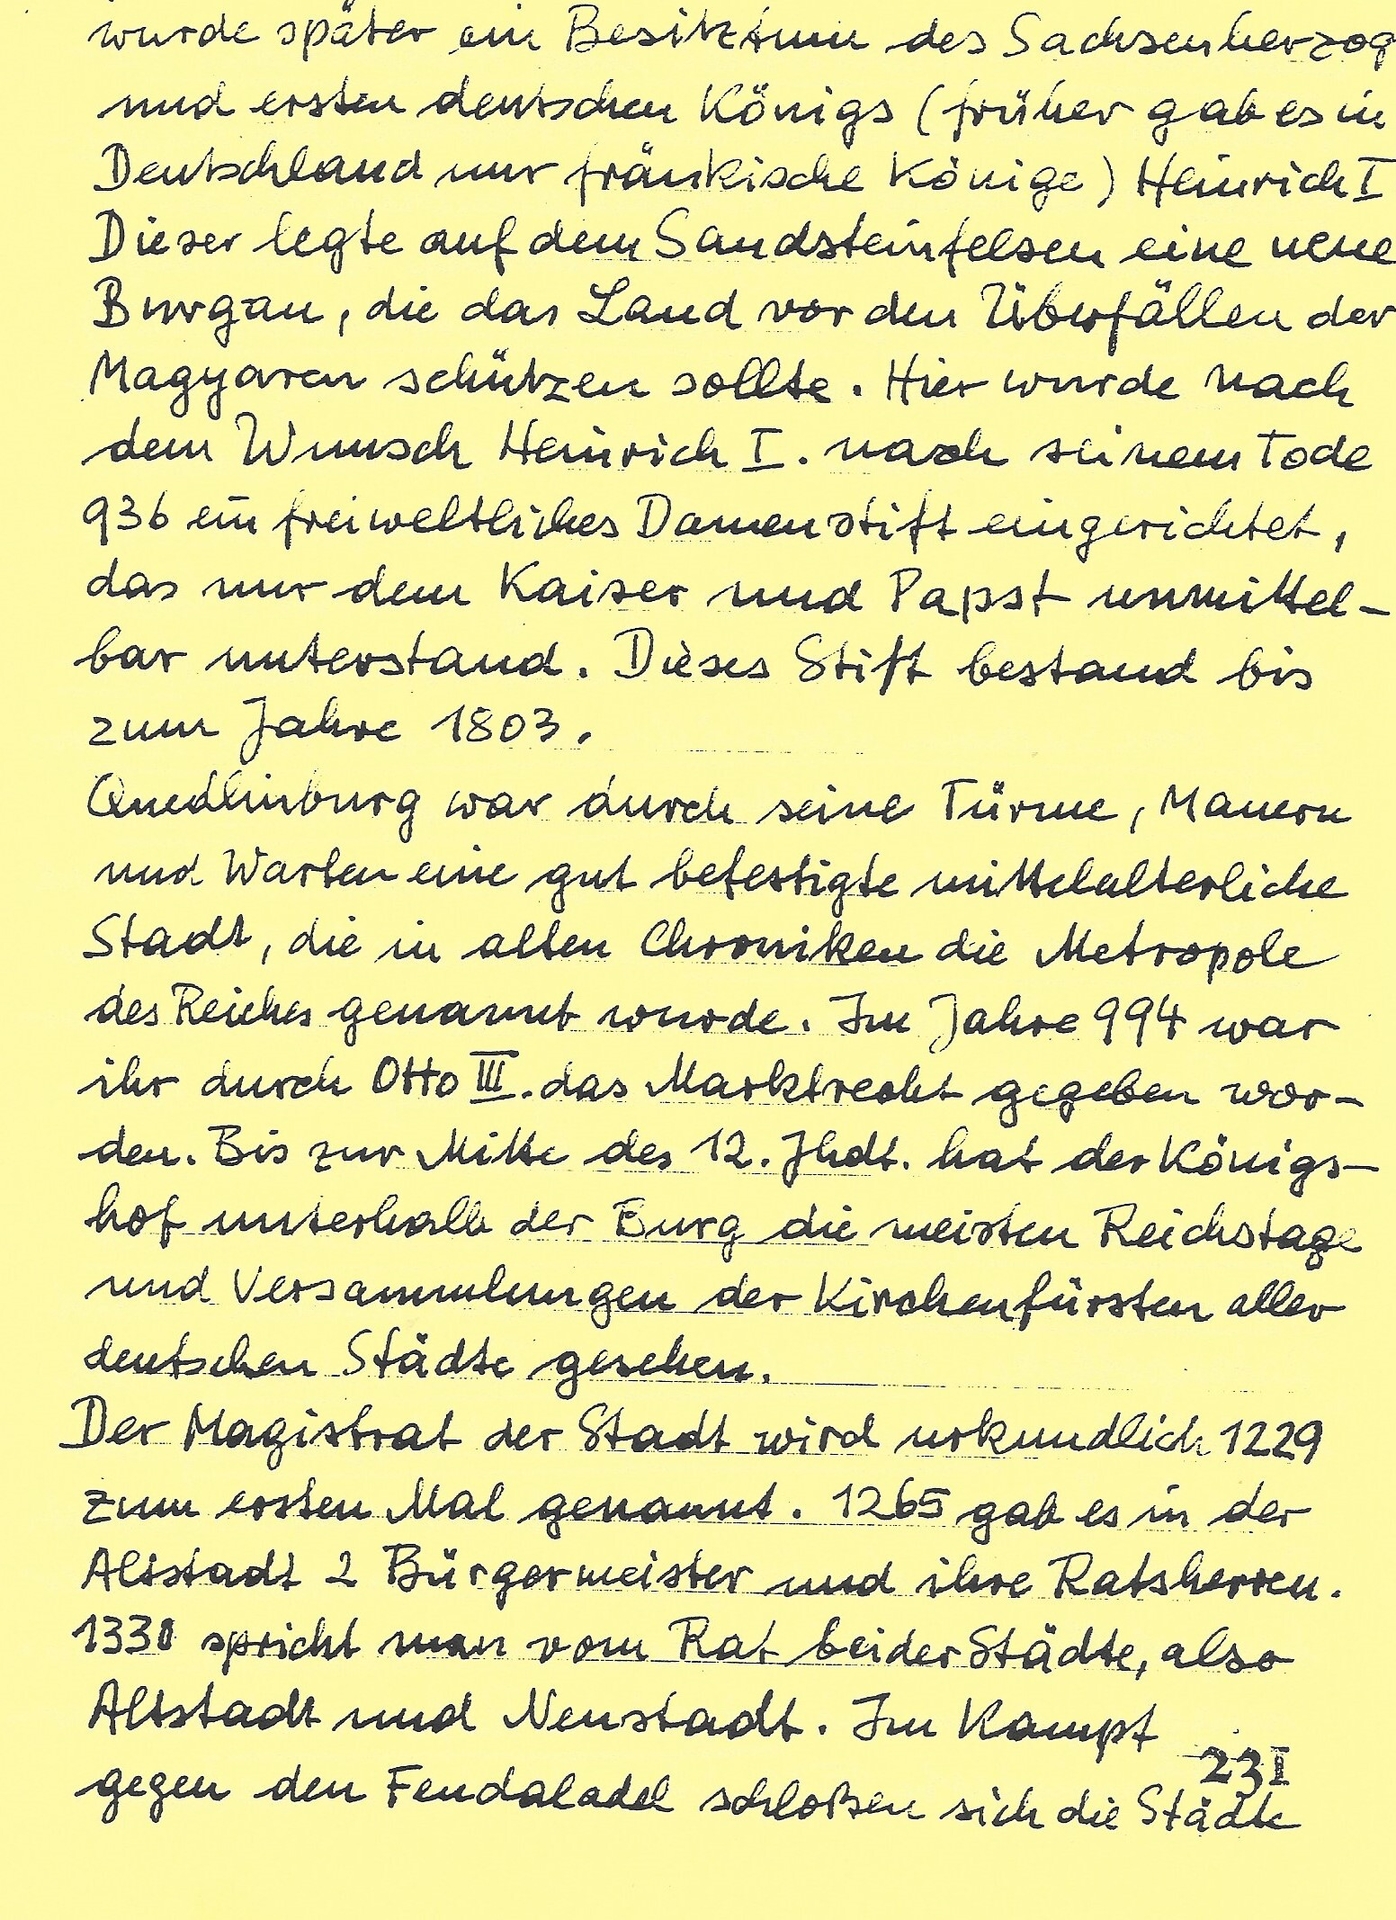 wurde später ein Besitztum des Sachsenherzog
und ersten deutschen Königs (früher gab es in
Deutschland nur fränkische Könige) Heinrich I
Dieser legte auf dem Sandsteinfelsen eine neue
Burg an, die das Land vor den Überfällen der
Magyaren schützen sollte. Hier wurde nach
dem Wunsch Heinrich I. nach seinem Tode
936 ein freiweltliches Damenstift eingerichtet,
das nur dem Kaiser und Papst unmittel-
bar unterstand. Dieses Stift bestand bis
zum Jahre 1803.
Quedlinburg war durch seine Türme, Mauern
und Warten eine gut befestigte mittelalterliche
Stadt, die in alten Chroniken die Metropole
des Reiches genannt wurde. Im Jahre 994 war
ihr durch Otto III. das Marktrecht gegeben wor-
den. Bis zur Mitte des 12. Jhdt. hat der Königs-
hof unterhalb der Burg die meisten Reichstage
und Versammlungen der Kirchenfürsten aller
deutschen Städte gesehen.
Der Magistrat der Stadt wird urkundlich 1229
zum ersten Mal genannt. 1265 gab es in der
Altstadt 2 Bürgermeister und ihre Ratsherren.
1330 spricht man vom Rat beider Städte, also
Altstadt und Neustadt. Im Kampf
231
gegen den Feudaladel schloßen sich die Städte